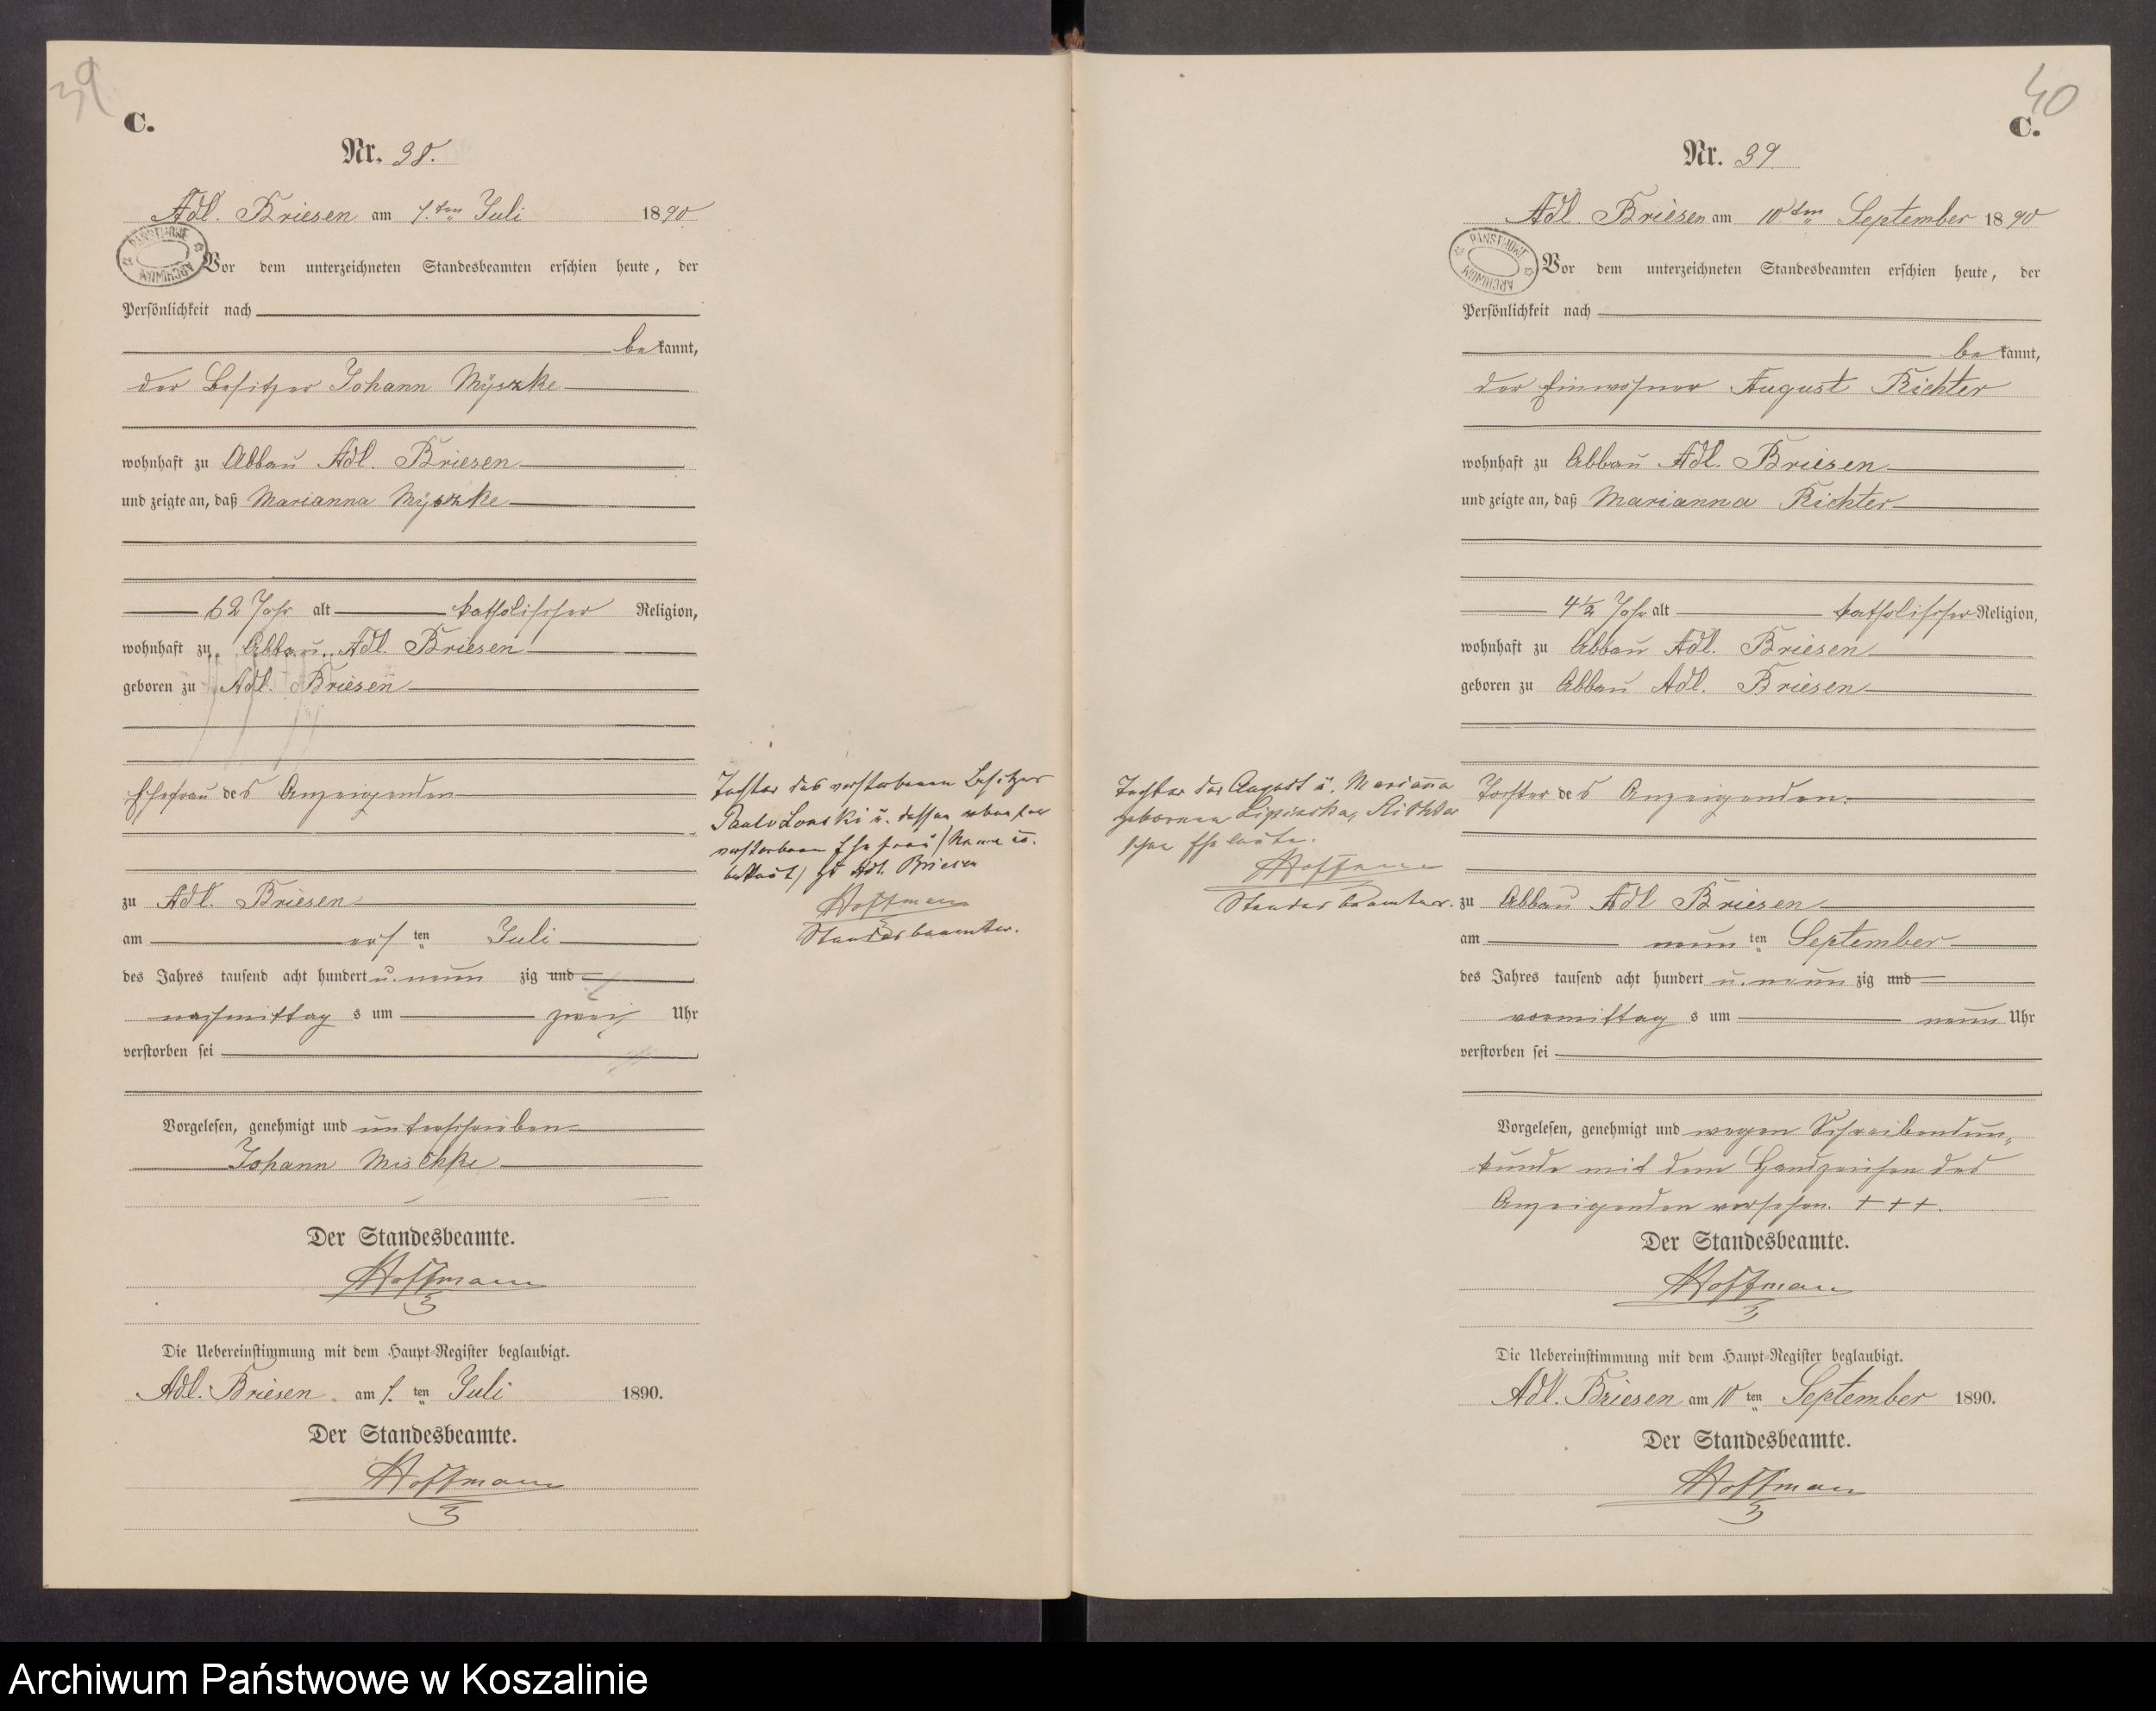 39
C.
Nr. 38.
Adl. Briesen am 1. ten Juli 1890
PAŃSTWOWE ARCHIWUM
Vor dem unterzeichneten Standesbeamten erschien heute, der
Persönlichkeit nach
bekannt,
der Besitzer Johann Myszke
wohnhaft zu Abbau Adl. Briesen
und zeigte an, daß Marianna Myszke
62 Jahr alt katholischer Religion,
wohnhaft zu Abbau Adl. Briesen
geboren zu Adl. Briesen
Ehefrau des Anzeigenden
zu Adl. Briesen
am ersten Juli
des Jahres tausend acht hundert u. neun zig und
nachmittags um zwei Uhr
verstorben sei
Vorgelesen, genehmigt und unterschrieben
Johann Mischke
Der Standesbeamte.
Hoffmann
Die Uebereinstimmung mit dem Haupt-Register beglaubigt.
Adl. Briesen am 1. ten Juli 1890.
Der Standesbeamte.
Hoffmann
Tochter des verstorbenen Besitzers
Paul Lonski u. dessen ebenfalls
verstorbenen Ehefrau (Name un-
bekannt) zu Adl. Briesen
Hoffmann
Standesbeamter.
40
C.
Nr. 39
Adl. Briesen am 10 ten September 1890
PAŃSTWOWE ARCHIWUM
Vor dem unterzeichneten Standesbeamten erschien heute, der
Persönlichkeit nach
bekannt,
der Einwohner August Richter
wohnhaft zu Abbau Adl. Briesen
und zeigte an, daß Marianna Richter
4½ Jahr alt katholischer Religion,
wohnhaft zu Abbau Adl. Briesen
geboren zu Abbau Adl. Briesen
Tochter des Anzeigenden.
Tochter der August u. Marianna
geborenen Lipinska, Richter
schen Eheleute.
Hoffmann
Standesbeamter.
zu Abbau Adl Briesen
am neunten September
des Jahres tausend acht hundert u. neun zig und
vormittags um neun Uhr
verstorben sei
Vorgelesen, genehmigt und wegen Schreibensun-
kunde mit dem Handzeichen des
Anzeigenden versehen. + + +.
Der Standesbeamte.
Hoffmann
Die Uebereinstimmung mit dem Haupt-Register beglaubigt.
Adl. Briesen am 10 ten September 1890.
Der Standesbeamte.
Hoffmann
Archiwum Państwowe w Koszalinie